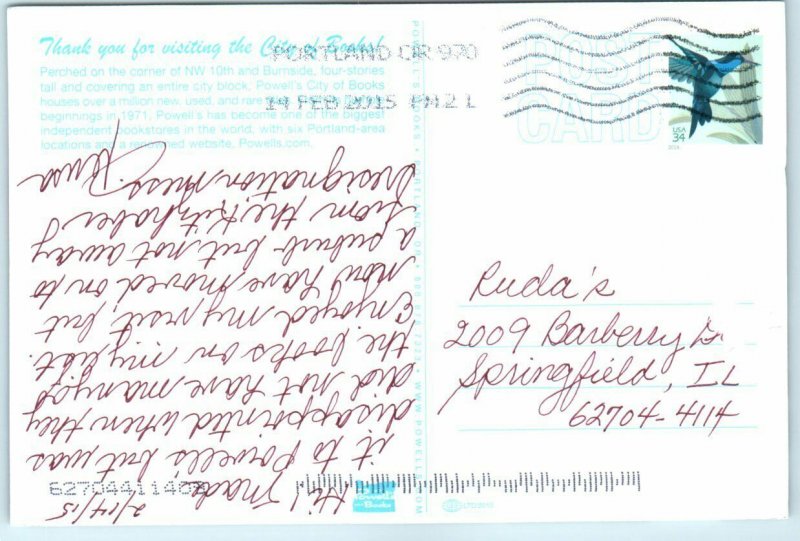 Thank you for visiting the City of Books!
Perched on the corner of NW 10th and Burnside, four-stories
tall and covering an entire city block, Powell's City of Books
houses over a million new, used, and rare
beginnings in 1971, Powell's has become one of the biggest
independent bookstores in the world, with six Portland-area
locations and a renowned website, Powells.com.
PORTLAND OR 970
14 FEB 2015 PM 2 L
POST
CARD
USA
34
2/14/15
Hi! Made
it to Powells but was
disappointed when they
did not have many of
the books on my list.
Enjoyed my visit but
now have moved on to
a suburb but not away
from the Kitzhaber
Resignation mess.
Ruda's
2009 Barberry Dr
Springfield, IL
62704-4114
POWELL'S BOOKS
PORTLAND, OR
WWW.POWELLS.COM
Powell's
Books